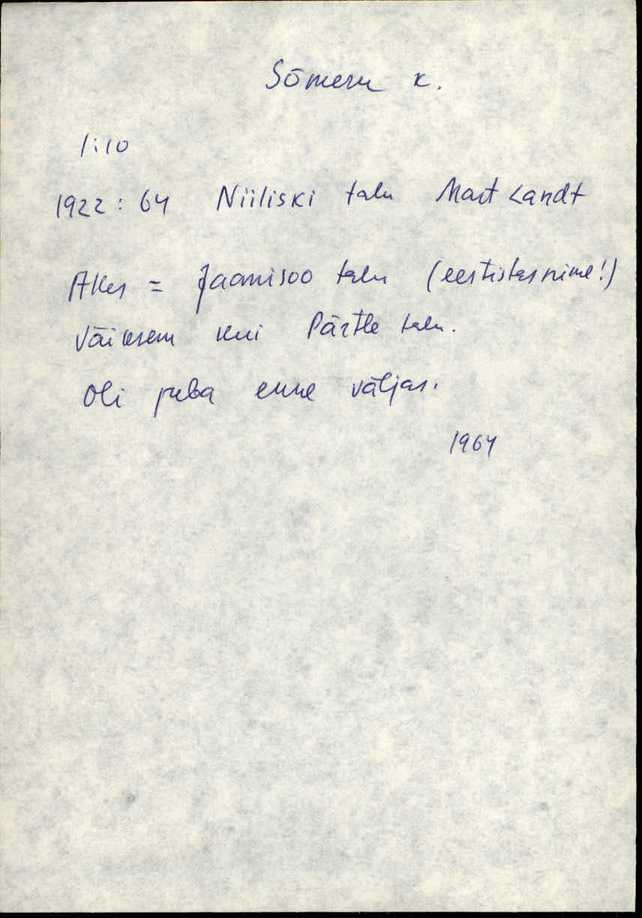 Sõmeru k.
1:10
1922: 64 Niiliski talu Mart Landt
AKes = Jaanisoo talu (eestistas nime!)
Väiksem kui Pärtle talu.
Oli juba enne väljas.
1964